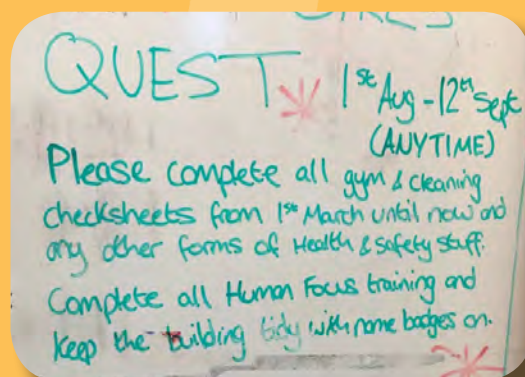 QUEST 1st Aug - 12th Sept
(ANYTIME)
Please complete all gym & cleaning
checksheets from 1st March until now and
any other forms of Health & safety stuff.
Complete all Human Focus training and
keep the building tidy with name badges on.